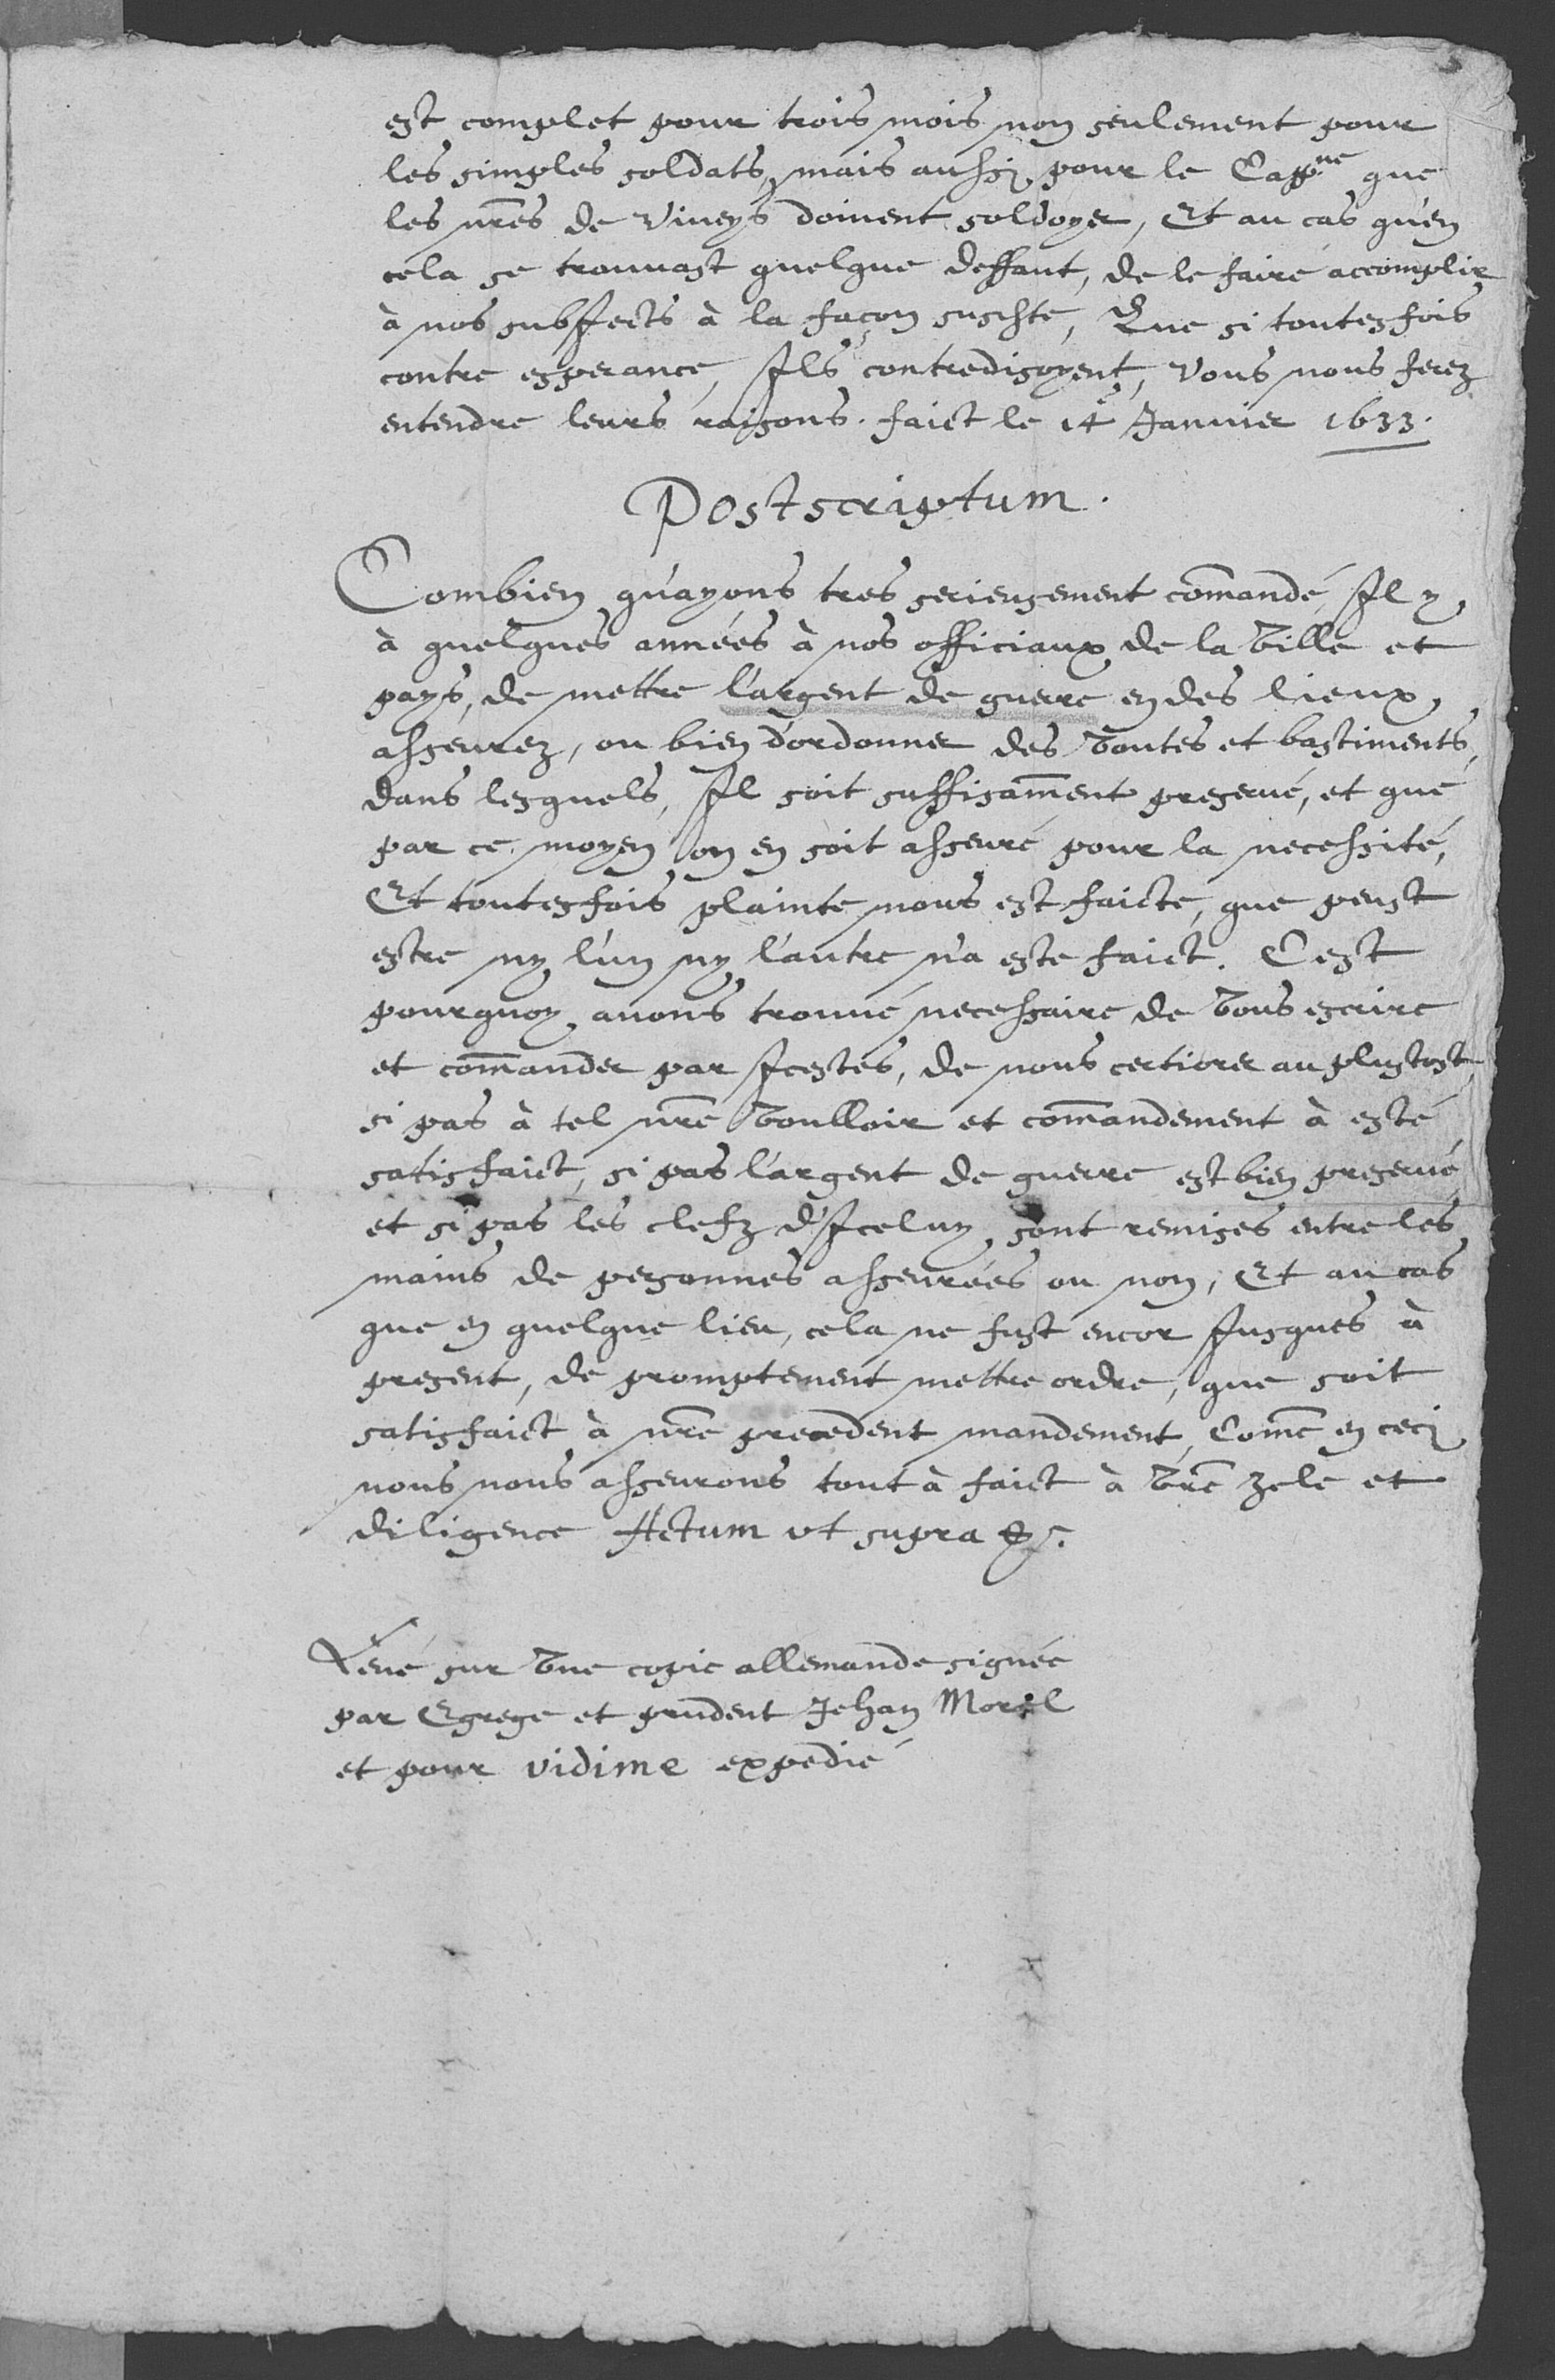 est complet pour trois mois non seulement pour
les simples soldats, mais aussy pour le Capp.ne que
les nres de Viveys doivent soldoyer, Et au cas qu'en
cela se trouvast quelque deffaut, de le faire accomplir
à nos subjects à la façon susdite, Que si toutesfois
contre esperance, Ils contredisoyent, Vous nous ferez
entendre leurs raisons. faict le 14e Janvier 1633.
Postscriptum.
Combien qu'ayons tres serieusement comandé, Il y
à quelques années à nos officiaux de la Ville et
pays, de mettre l'argent de guerre en des lieux
asseurez, ou bien d'ordonner des Voutes et bastiments,
dans lesquels, Il soit suffisament preservé, et que
par ce moyen on en soit asseuré pour la necessité,
Et toutesfois plainte nous est faicte, que peust
estre ny l'un ny l'autre n'a este faict. C'est
pourquoy avons trouvé necessaire de Vous escrire
et comander par Icestes, de nous certiorer au plustost,
si pas à tel nre Voulloir et comandement à esté
satisfaict, si pas l'argent de guerre est bien preservé
et si pas les clefz d'Iceluy sont remises entre les
mains de personnes asseurées ou non, Et au cas
que en quelque lieu, cela ne fust encor Jusques à
present, de promptement mettre ordre, que soit
satisfaict à nre precedent mandement, Come en cecy
nous nous asseurons tout à faict à Vre zele et
diligence Actum ut supra &c.
Levé sur Une copie allemande signée
par Egrege et prudent Jehan Morel
et pour vidime expedié